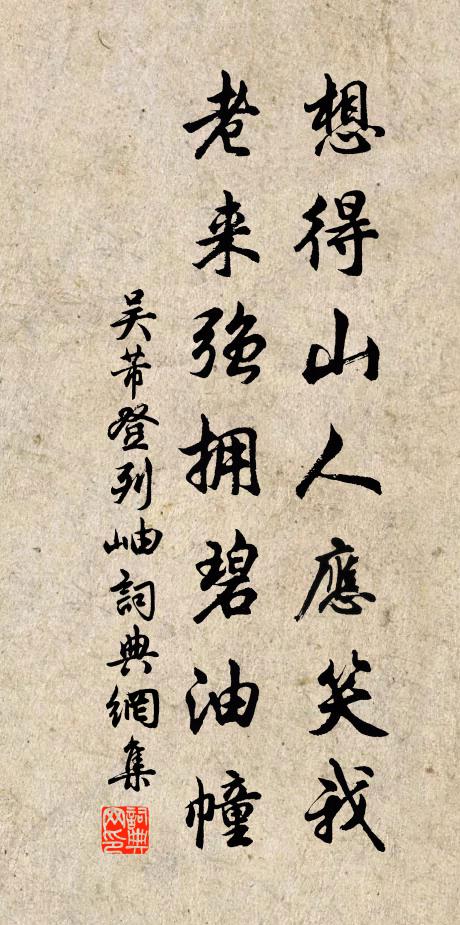 想得山人應笑我
老来强拥碧油幢
吴芾登列岫詞典網集
詞典网印